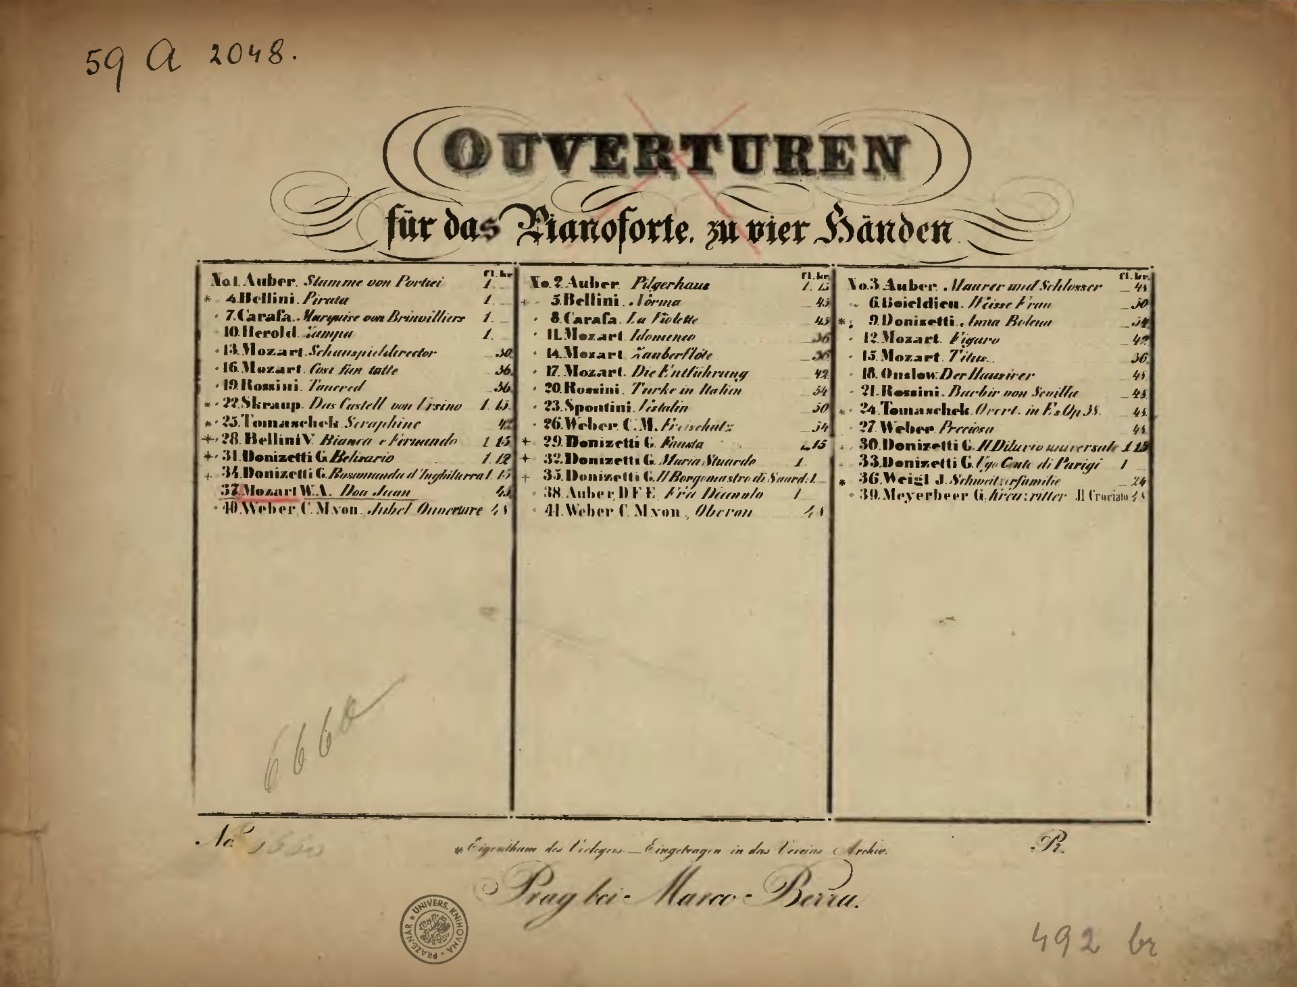 59 A 2048.
OUVERTUREN
für das Pianoforte. zu vier Händen
fl. kr.
No.1. Auber. Stumme von Portici 1. _
* 4. Bellini. Pirata 1. _
· 7. Carafa. Marquise von Brinvilliers 1. _
· 10. Herold. Zampa 1. _
· 13. Mozart. Schauspieldirector _ 30
· 16. Mozart. Cosi fan tutte _ 36
· 19. Rossini. Tancred _ 36
* · 22. Skraup. Das Castell von Ursino 1. 15
* · 25. Tomaschek. Seraphine 42
+ · 28. Bellini V. Bianca e Fernando 1 15
+ · 31. Donizetti G. Belisario 1 12
+ · 34. Donizetti G. Rosmunda d'Inghilterra 1. 15
37. Mozart W. A. Don Juan 45
· 40. Weber C. M. von. Jubel Ouverture 48
fl. kr.
No.2. Auber. Pilgerhaus 1. 15
+ 5. Bellini. Norma _ 45
· 8. Carafa. La Violette _ 45
· 11. Mozart. Idomeneo _ 36
· 14. Mozart. Zauberflöte _ 36
· 17. Mozart. Die Entführung _ 42
· 20. Rossini. Türke in Italien _ 54
· 23. Spontini. Vestalin _ 50
· 26. Weber C. M. Freischütz _ 54
+ · 29. Donizetti G. Fausta 1. 15
+ · 32. Donizetti G. Maria Stuarda 1
+ · 35. Donizetti G. Il Borgomastro di Saard. 1 _
· 38. Auber, D. F. E. Fra Diavolo 1
· 41. Weber C. M. von, Oberon _ 48
fl. kr.
No.3. Auber. Maurer und Schlosser _ 48
· 6. Boieldieu. Weisse Frau _ 50
* · 9. Donizetti. Anna Bolena _ 54
· 12. Mozart. Figaro _ 42
· 15. Mozart. Titus _ 36
· 18. Onslow. Der Hausirer _ 48
· 21. Rossini. Barbir von Sevilla _ 48
* · 24. Tomaschek. Overt. in Es Op. 38. _ 48
· 27. Weber. Preciosa _ 48
· 30. Donizetti G. Il Diluvio universale 1 15
· 33. Donizetti G. Ugo Conte di Parigi 1
* · 36. Weigl J. Schweitzerfamilie _ 24
· 39. Meyerbeer G. Kreuzritter Il Crociato 48
No.
* Eigenthum des Verlegers _ Eingetragen in das Vereins Archiv.
Pr.
Prag bei Marco Berra.
UNIVERS. KNIHOVNA
492 br